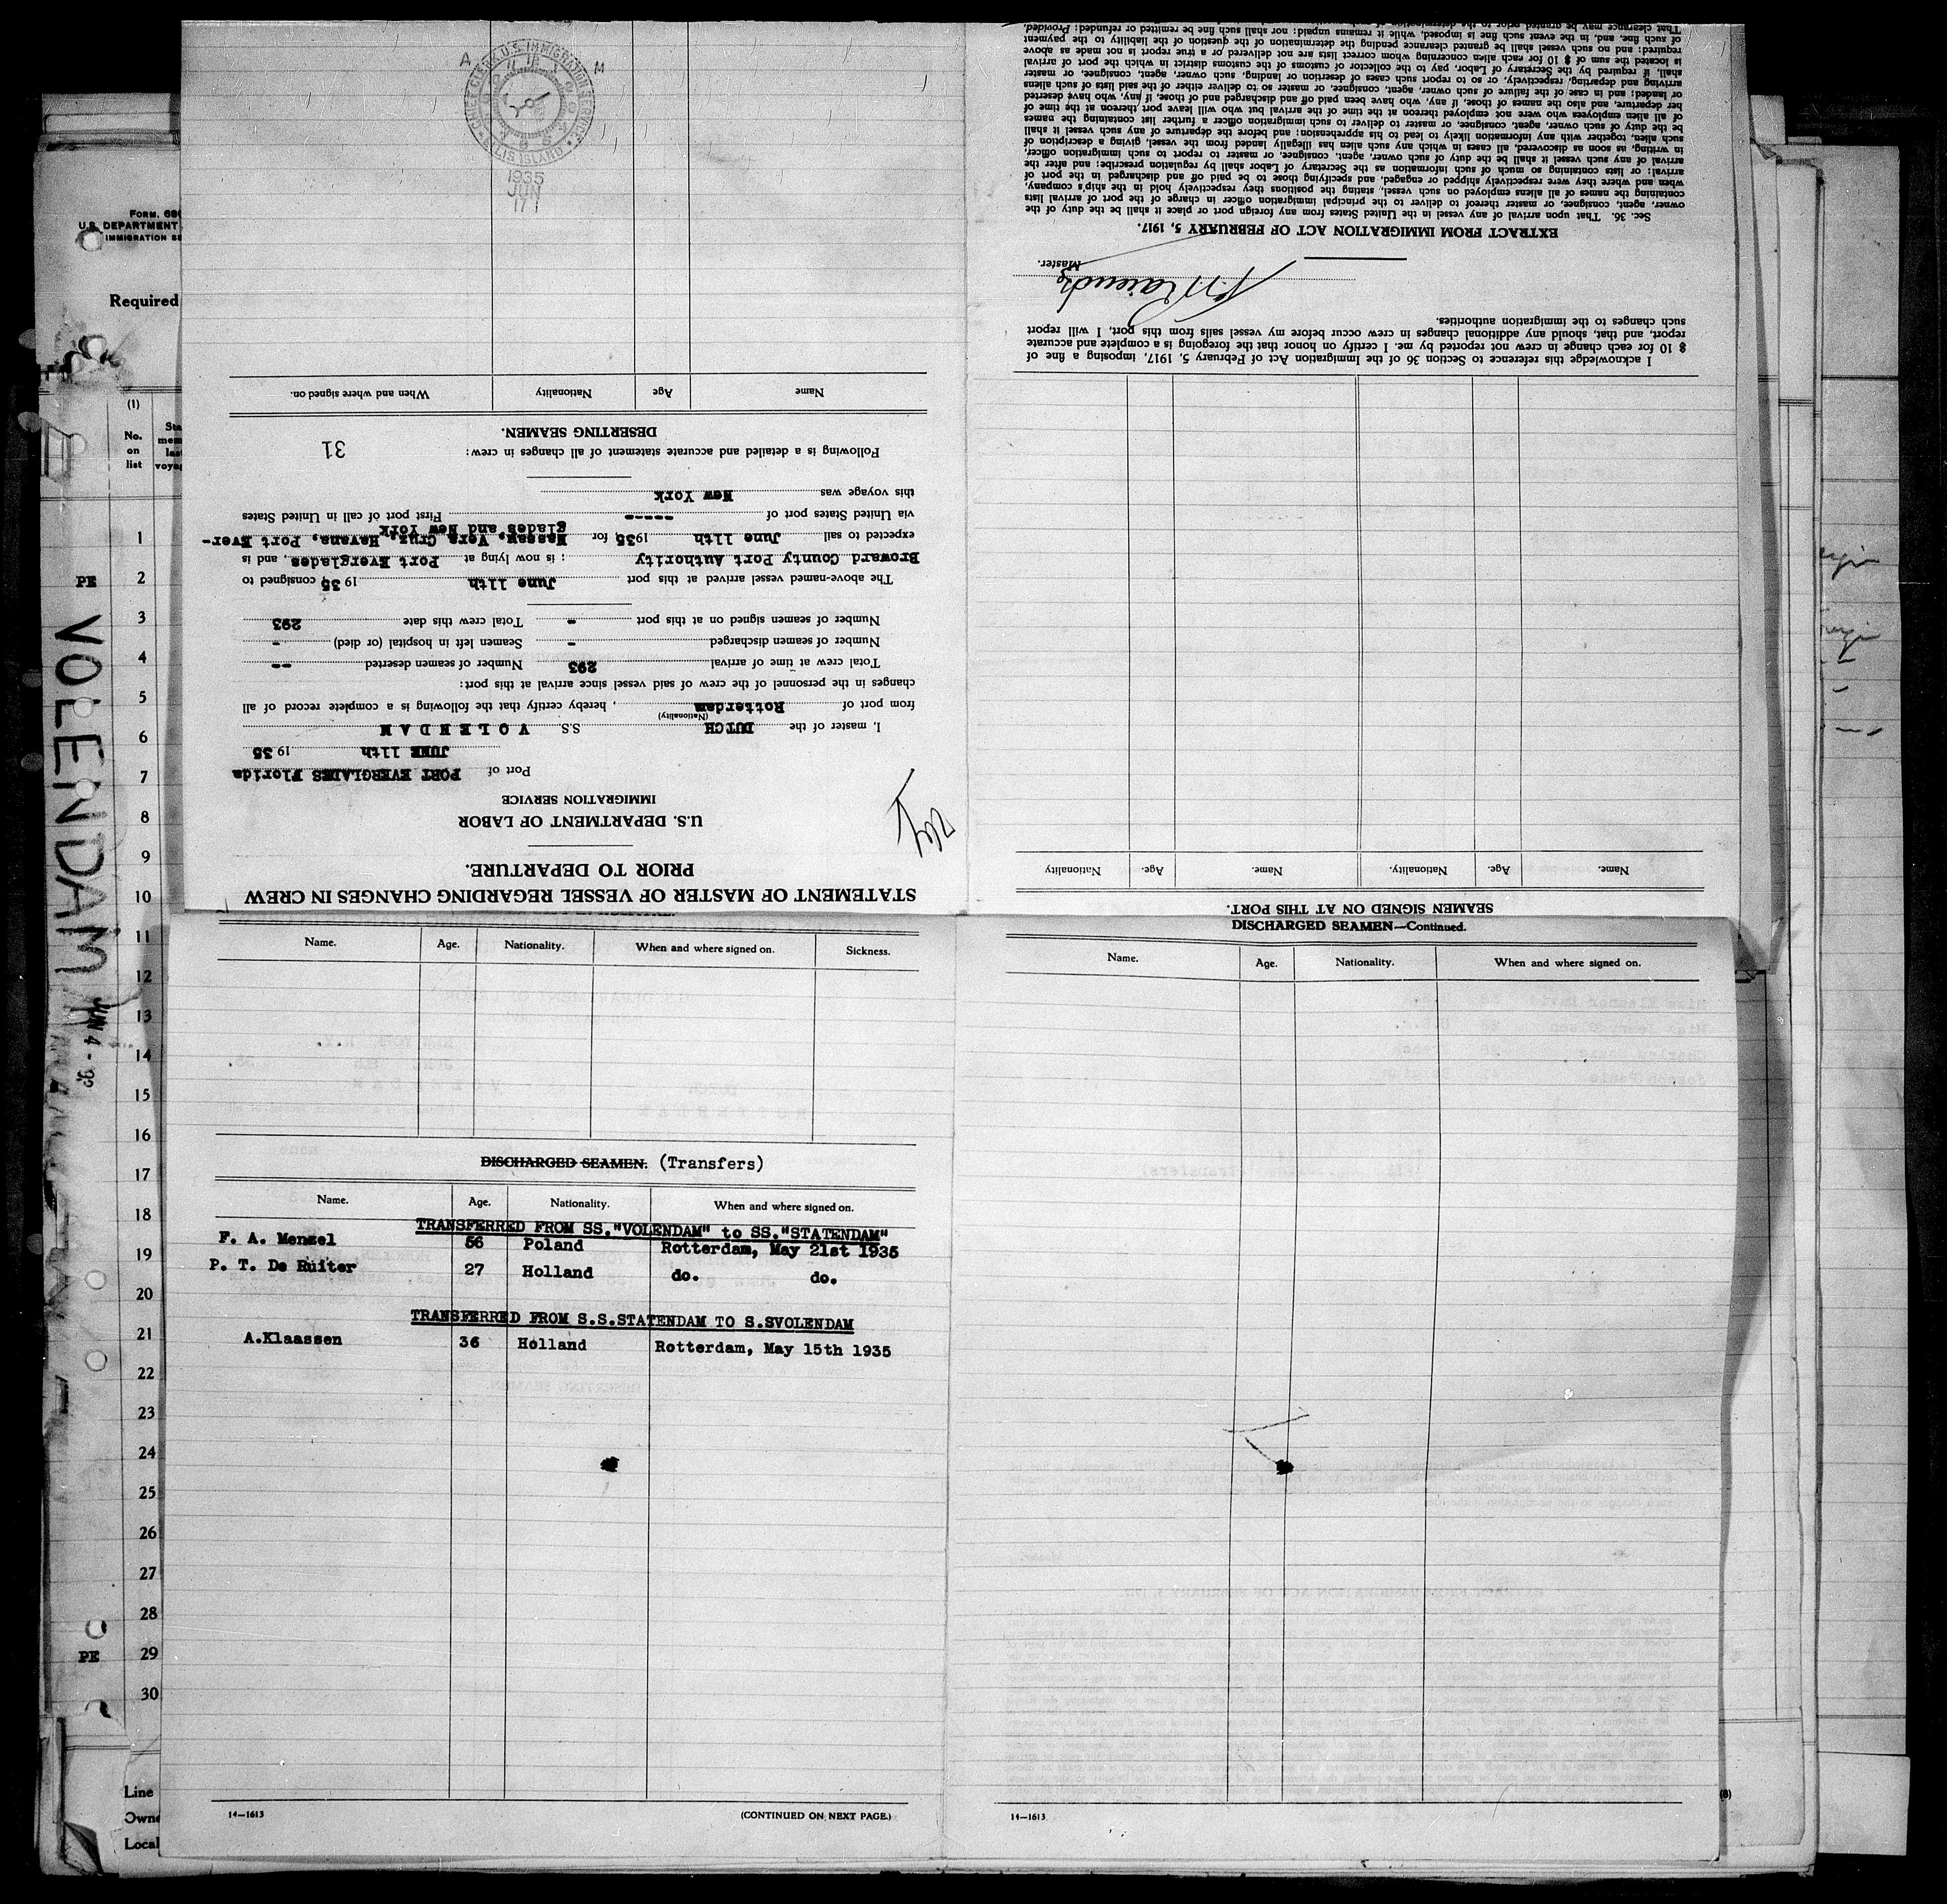 FORM. 680
U.S. DEPARTMENT
IMMIGRATION SE
Required
(1)
No.
on
list
PE
VOLENDAM
JUN 4 - 35
1
2
3
4
5
6
7
8
9
10
11
12
13
14
15
16
17
18
19
20
21
22
23
24
25
26
27
28
29
30
PE
Line
Owne
Local
STATEMENT OF MASTER OF VESSEL REGARDING CHANGES IN CREW
PRIOR TO DEPARTURE.
U.S. DEPARTMENT OF LABOR
IMMIGRATION SERVICE
Port of PORT EVERGLADES Florida
JUNE 11th 19 35
I, master of the DUTCH S.S. VOLENDAM
(Nationality)
from port of Rotterdam, hereby certify that the following is a complete record of all
changes in the personnel of the crew of said vessel since arrival at this port:
Total crew at time of arrival 293 Number of seamen deserted --
Number of seamen discharged - Seamen left in hospital (or died) -
Number of seamen signed on at this port - Total crew this date 293
The above-named vessel arrived at this port June 11th 19 35 consigned to
Broward County Port Authority ; is now lying at Port Everglades, and is
expected to sail June 11th 1935 for Nassau, Vera Cruz, Havana, Port Ever-
glades and New York
via United States port of ----- First port of call in United States
this voyage was New York
Following is a detailed and accurate statement of all changes in crew:
31
DESERTING SEAMEN.
Name Age Nationality When and where signed on.
CHIEF CLERK U.S. IMMIGRATION SERVICE
ELLIS ISLAND
A M
1935
JUN
17
SEAMEN SIGNED ON AT THIS PORT.
Name. Age. Nationality. Name. Age. Nationality
I acknowledge this reference to Section 36 of the Immigration Act of February 5, 1917, imposing a fine of
$ 10 for each change in crew not reported by me. I certify on honor that the foregoing is a complete and accurate
report, and that, should any additional changes in crew occur before my vessel sails from this port, I will report
such changes to the immigration authorities.
Master.
EXTRACT FROM IMMIGRATION ACT OF FEBRUARY 5, 1917.
Sec. 36. That upon arrival of any vessel in the United States from any foreign port or place it shall be the duty of the
owner, agent, consignee, or master thereof to deliver to the principal immigration officer in charge of the port of arrival lists
containing the names of all aliens employed on such vessel, stating the positions they respectively hold in the ship's company,
when and where they were respectively shipped or engaged, and specifying those to be paid off and discharged in the port of
arrival; or lists containing so much of such information as the Secretary of Labor shall by regulation prescribe; and after the
arrival of any such vessel it shall be the duty of such owner, agent, consignee, or master to report to such immigration officer,
in writing, as soon as discovered, all cases in which any such alien has illegally landed from the vessel, giving a description of
such alien, together with any information likely to lead to his apprehension; and before the departure of any such vessel it shall
be the duty of such owner, agent, consignee, or master to deliver to such immigration officer a further list containing the names
of all alien employees who were not employed thereon at the time of the arrival but who will leave port thereon at the time of
her departure, and also the names of those, if any, who have been paid off and discharged and of those, if any, who have deserted
or landed; and in case of the failure of such owner, agent, consignee, or master so to deliver either of the said lists of such aliens
arriving and departing, respectively, or so to report such cases of desertion or landing, such owner, agent, consignee, or master
shall, if required by the Secretary of Labor, pay to the collector of customs of the customs district in which the port of arrival
is located the sum of $ 10 for each alien concerning whom correct lists are not delivered or a true report is not made as above
required; and no such vessel shall be granted clearance pending the determination of the question of the liability to the payment
of such fine, and, in the event such fine is imposed, while it remains unpaid; nor shall such fine be remitted or refunded: Provided,
That clearance may be granted prior to the determination of
Name. Age. Nationality. When and where signed on. Sickness.
DISCHARGED SEAMEN. (Transfers)
Name. Age. Nationality. When and where signed on.
TRANSFERRED FROM SS."VOLENDAM" to SS."STATENDAM"
F. A. Menzel 56 Poland Rotterdam, May 21st 1935
P. T. De Ruiter 27 Holland do. do.
TRANSFERRED FROM S.S.STATENDAM TO S.SVOLENDAM
A.Klaassen 36 Holland Rotterdam, May 15th 1935
14—1613 (CONTINUED ON NEXT PAGE.)
DISCHARGED SEAMEN—Continued.
Name. Age. Nationality. When and where signed on.
14—1613
(8)